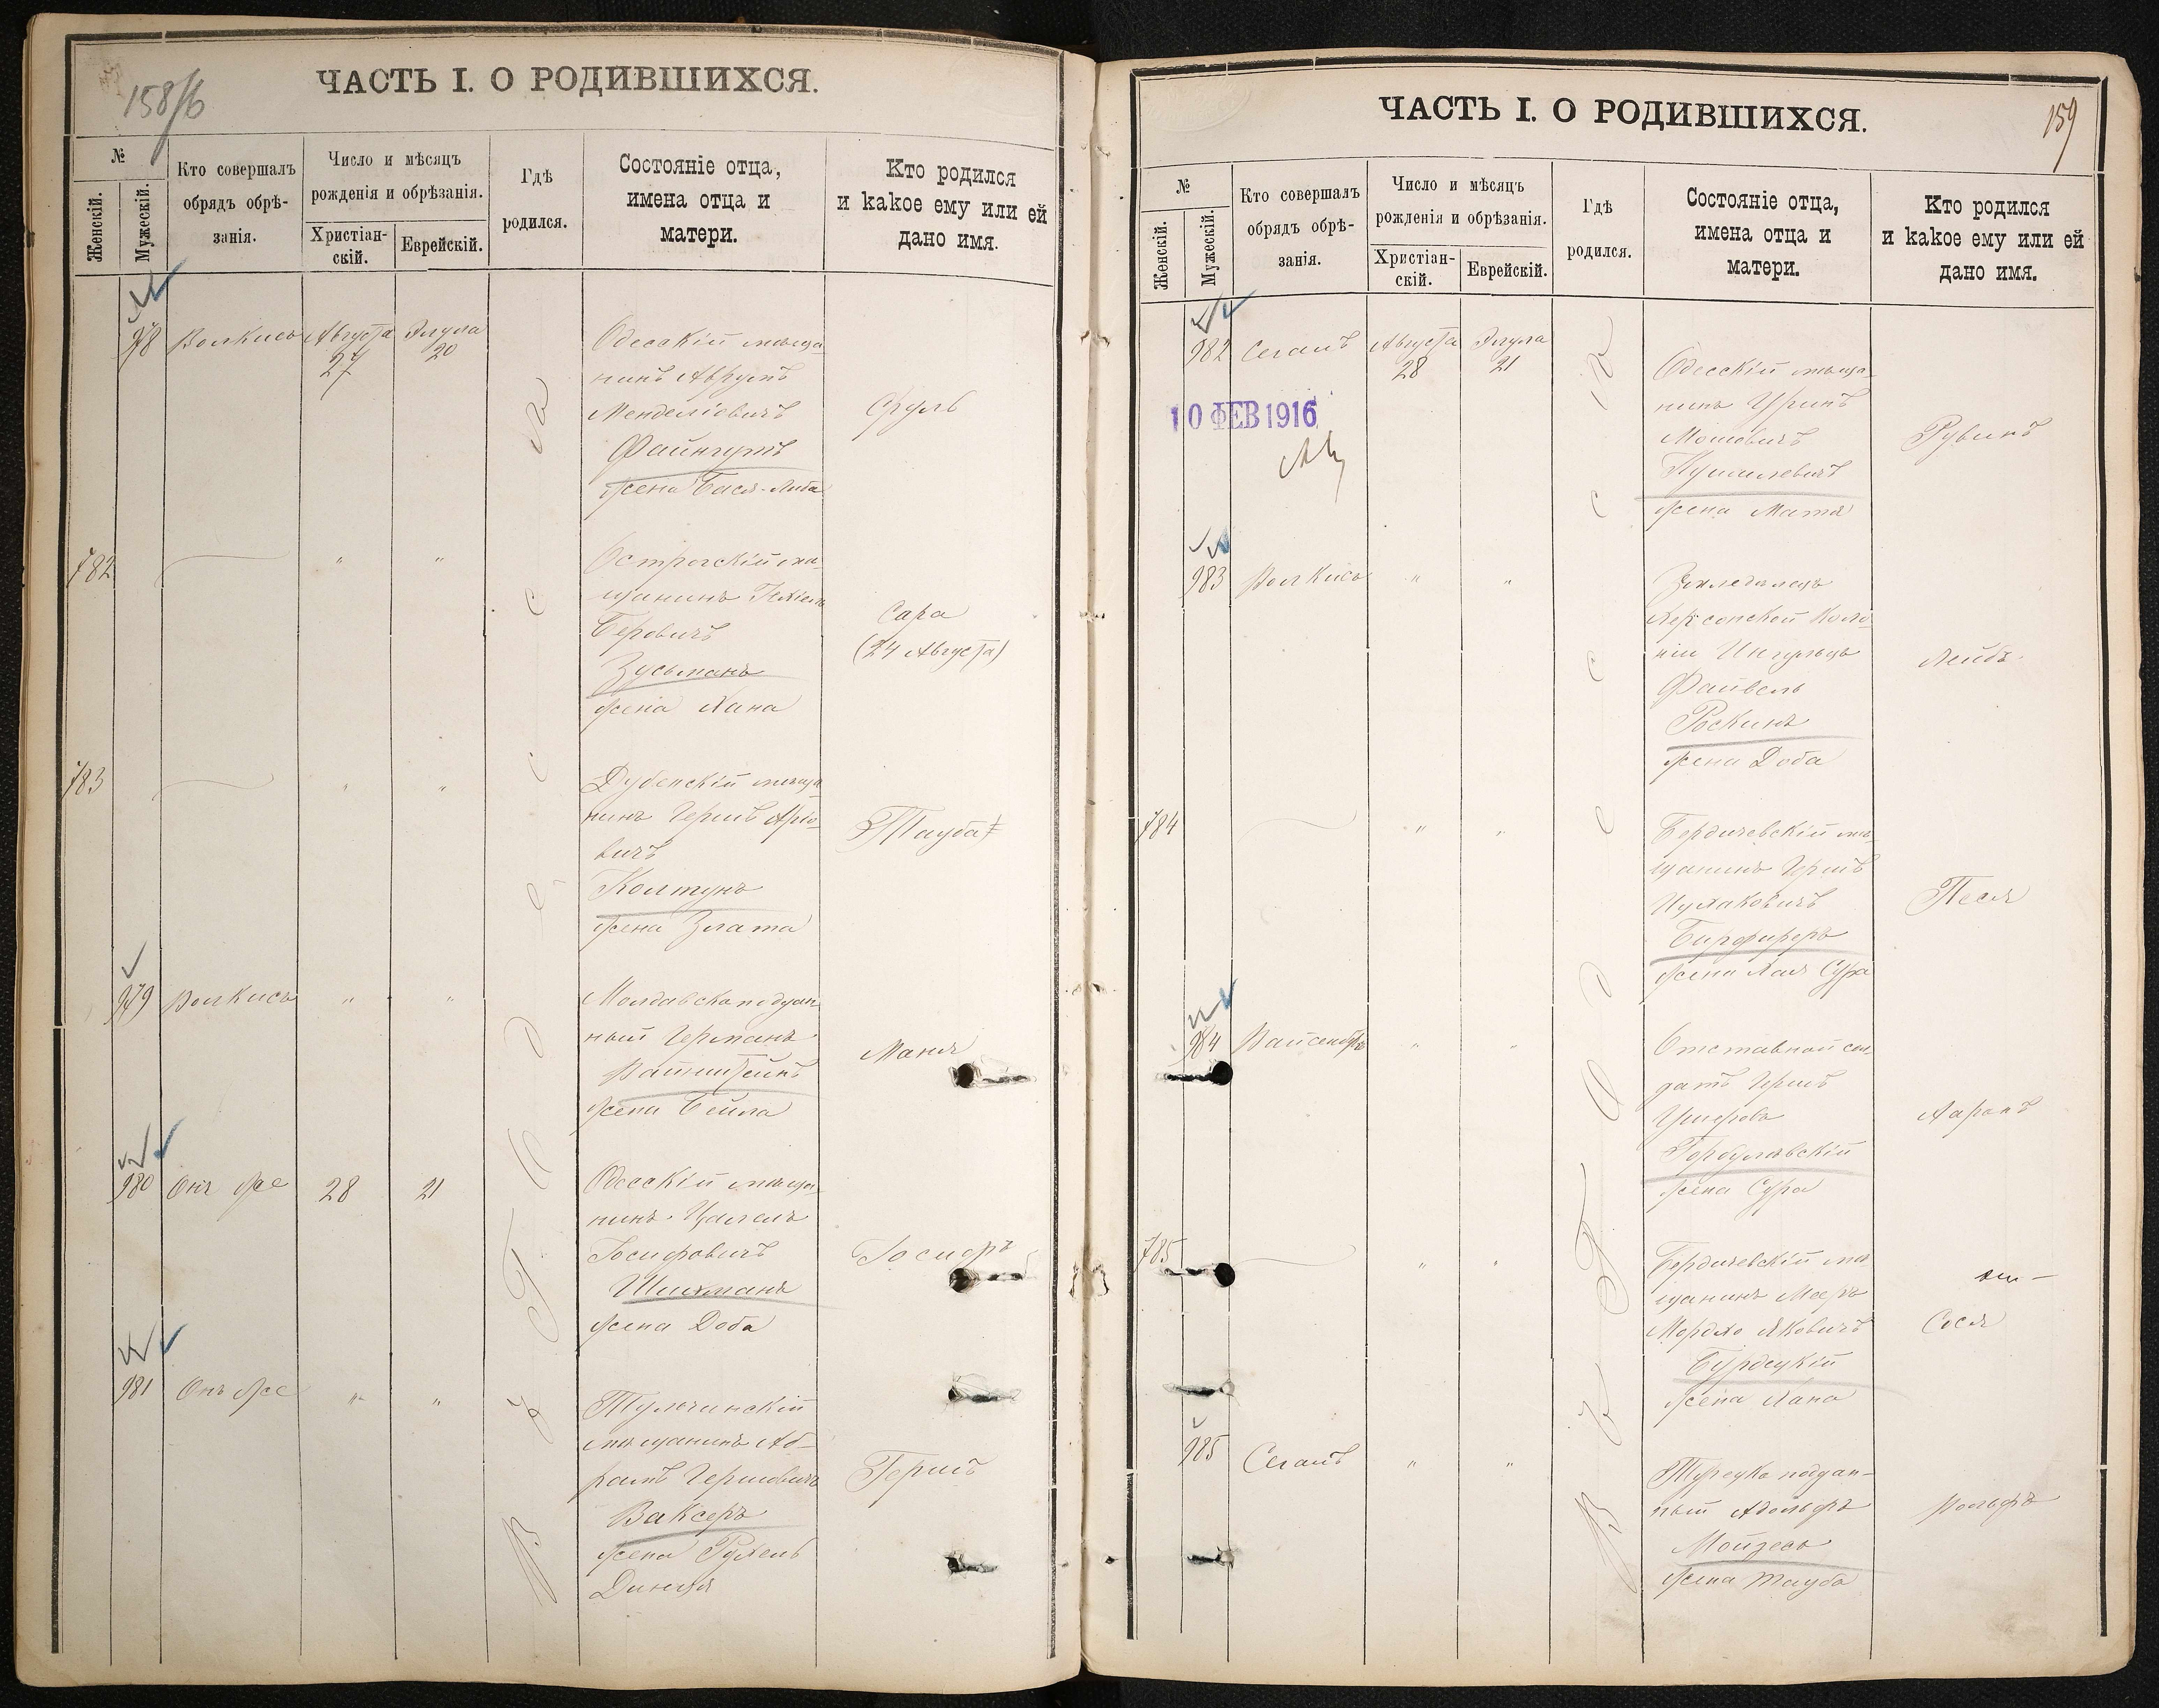 158/б
ЧАСТЬ I. О РОДИВШИХСЯ.
№
Женскій.
Мужескій.
Кто совершалъ
обрядъ обрѣ-
занія.
Число и мѣсяцъ
рожденія и обрѣзанія.
Христіан-
скій.
Еврейскій.
Гдѣ
родился.
Состояніе отца,
имена отца и
матери.
Кто родился
и какое ему или ей
дано имя.
въ Городѣ Одессѣ
978 Волкисъ Августа 27 Элула 20
Одесскій мѣща-
нинъ Аврумъ
Менделіовичъ
Файнгутъ
жена Бася-Либа
Сруль
782 " "
Острогскій мѣ-
щанинъ Іехіель
Беровичъ
Зусьманъ
жена Хана
Сара
(24 Августа)
783 " "
Дубенскій мѣща-
нинъ Гершъ Арю-
вичъ
Колтунъ
жена Злата
Тауба
979 Волкисъ " "
Молдавскоподдан-
ный Германъ
Вайнштейнъ
жена Бейла
Маня
980 Онъ же 28 21
Одесскій мѣща-
нинъ Цалель
Іосифовичъ
Шихманъ
жена Доба
Іосифъ
981 Онъ же " "
Тульчинскій
мѣщанинъ Аб-
рамъ Гершовичъ
Ваксеръ
жена Рухель
Динця
Гершъ
159
ЧАСТЬ I. О РОДИВШИХСЯ.
№
Женскій.
Мужескій.
Кто совершалъ
обрядъ обрѣ-
занія.
Число и мѣсяцъ
рожденія и обрѣзанія.
Христіан-
скій.
Еврейскій.
Гдѣ
родился.
Состояніе отца,
имена отца и
матери.
Кто родился
и какое ему или ей
дано имя.
въ Городѣ Одессѣ
982 Сегалъ Августа 28 Элула 21
10 ФЕВ 1916
Одесскій мѣща-
нинъ
Мошовичъ
жена Матя
Рувинъ
983 Волкисъ " "
Земледѣлецъ
Херсонской Коло-
ніи Ингулецъ
Файвель
Роскинъ
жена Доба
Лейбъ
784 " "
Бердичевскій мѣ-
щанинъ Гершъ
Ицхаковичъ
Бирфиреръ
жена Хая Сура
Песя
984 Вайсенбергъ " "
Отставной сол-
датъ Гершъ
Ушерова
Горбулевскій
жена Сура
Ааронъ
785 " "
Бердичевскій мѣ
щанинъ Мееръ
Мордко Яковичъ
Бурдецкій
жена Хана
Сося
985 Сегалъ " "
Турецко поддан-
ный Адольфъ
Мойзесъ
жена Тауба
Вольфъ